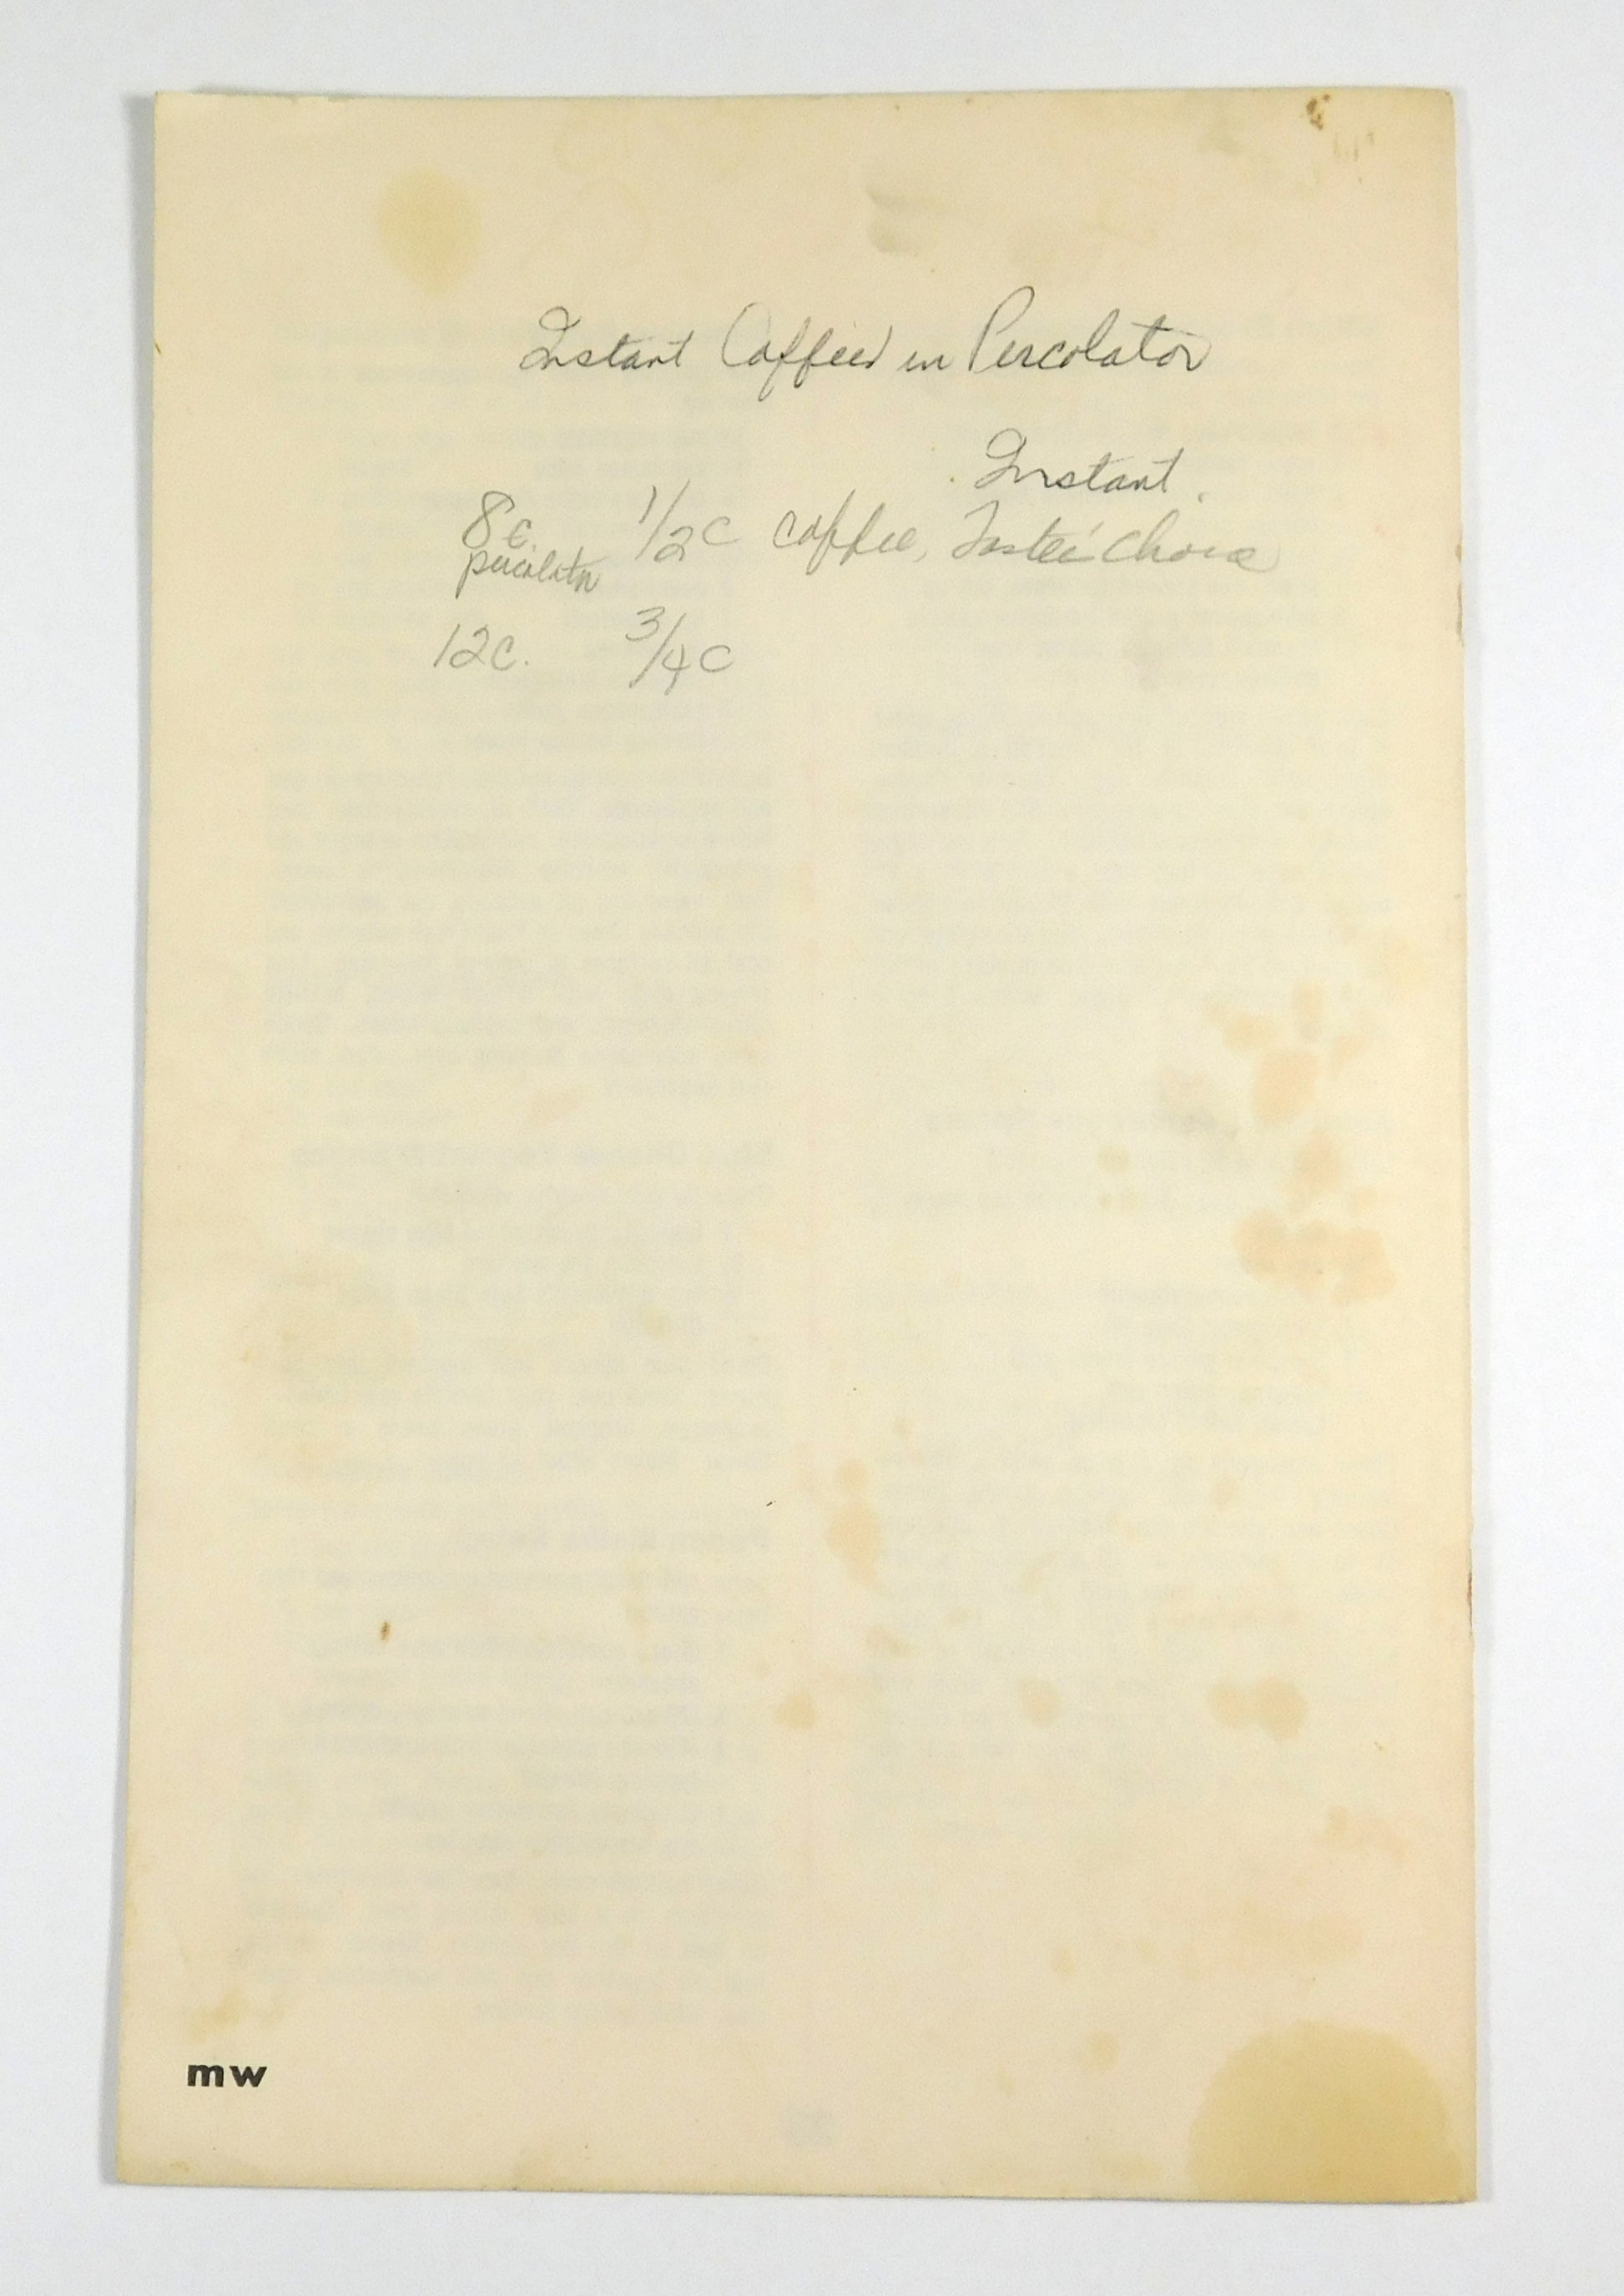 Instant Coffee in Percolator
Instant
8c. 1/2 c coffee, Taster Choice
percolator
12c. 3/4 c
mw